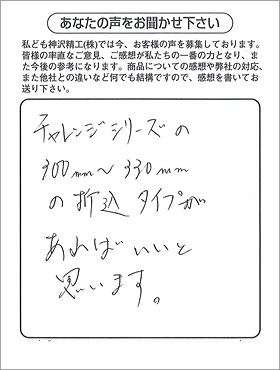 あなたの声をお聞かせ下さい
私ども神沢精工(株)では今、お客様の声を募集しております。
皆様の率直なご意見、ご感想が私たちの一番の力となり、ま
た今後の参考になります。商品についての感想や弊社の対応、
また他社との違いなど何でも結構ですので、感想を書いてお
送り下さい。
チャレンジシリーズの
300mm～330mm
の折込タイプが
あればいいと
思います。